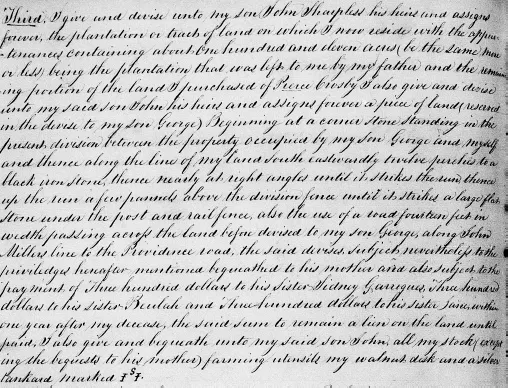 Third. I give and devise unto my son John Sharpless his heirs and assigns
forever, the plantation or tract of land on which I now reside with the appur
-tenances containing about One hundred and eleven acres (be the same more
or less) being the plantation that was left to me by my father and the remain
ing portion of the land I purchased of Peirce Crosby I also give and devise
unto my said son John his heirs and assigns forever a piece of land (reserved
in the devise to my son George) Beginning at a corner stone standing in the
present division between the property occupied by my son George and myself
and thence along the line of my land South eastwardly twelve perches to a
black iron stone, thence nearly at right angles until it strikes the run, thence
up the run a few pannels above the division fence until it strikes a large flat
stone under the post and rail fence, also the use of a road fourteen feet in
wedth passing across the land before devised to my son George, along John
Millers line to the Providence road, the said devises, subject, nevertheless to the
priviledges hereafter mentioned bequeathed to his mother and also subject to the
payment of Three hundred dollars to his sister Sidney Garregues, Three hundred
dollars to his sister Beulah and Three hundred dollars to his sister Jane, within
one year after my decease, the said sum to remain a lien on the land until
paid, I also give and bequeath unto my said son John, all my stock (except
ing the bequests to his mother) farming utensils my walnut desk and a silver
tankard marked I S I.